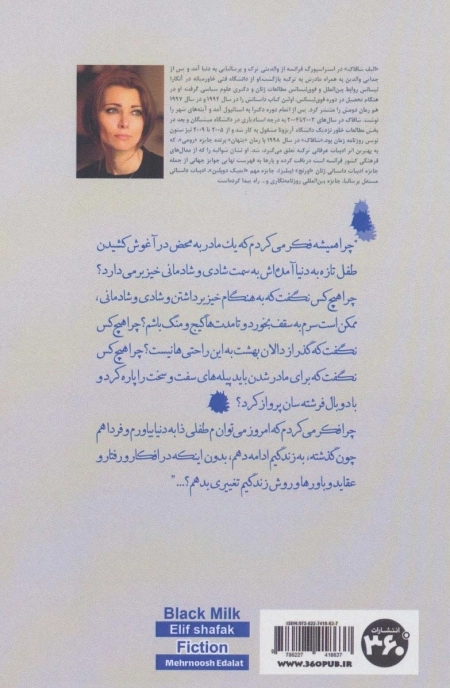 «الیف شافاک» در استراسبورگ فرانسه از والدینی ترک و بریتانیایی به دنیا آمد و پس از
جدایی والدین به همراه مادرش به ترکیه بازگشت. او از دانشگاه فنی خاورمیانه در آنکارا
لیسانس روابط بین‌الملل و فوق‌لیسانس مطالعات زنان و دکترای علوم سیاسی گرفت. او در
هنگام تحصیل در دوره فوق‌لیسانس، اولین کتاب داستانش را در سال ۱۹۹۴ و در سال ۱۹۹۷
هم رمان دومش را منتشر کرد. پس از اتمام دوره دکترا به استانبول آمد و آینه‌های شهر را
نوشت. شافاک در سال‌های ۲۰۰۳تا۲۰۰۴ به درجه استادیاری در دانشگاه میشیگان و بعد در
بخش مطالعات خاور نزدیک دانشگاه آریزونا مشغول به کار شد و از ۲۰۰۵ تا ۲۰۰۹ نیز ستون
نویس روزنامه زمان بود. «شافاک» در سال ۱۹۹۸ با رمان «پنهان» برنده جایزه «رومی»، که
به بهترین اثر ادبیات عرفانی ترکیه تعلق می‌گیرد، شد. او نشان شوالیه را که از مدال‌های
فرهنگی کشور فرانسه است دریافت کرده و بارها به فهرست نهایی جوایز جهانی از جمله
جایزه ادبیات داستانی زنان «اورنج» (بیلیز)، جایزه مهم «ایمپک دوبلین»، ادبیات داستانی
مستقل بریتانیا، جایزه بین‌المللی روزنامه‌نگاری و... راه پیدا کرده‌است.
"چرا همیشه فکر می‌کردم که یک مادر به محض در آغوش کشیدن
طفل تازه به دنیا آمده‌اش به سمت شادی و شادمانی خیز برمی‌دارد؟
چرا هیچ‌کس نگفت که به هنگام خیز برداشتن و شادی و شادمانی،
ممکن است سرم به سقف بخورد و تا مدت‌ها گیج و منگ باشم؟ چرا هیچ‌کس
نگفت که گذر از دالان بهشت به این راحتی‌ها نیست؟ چرا هیچ‌کس
نگفت که برای مادر شدن باید پیله‌های سفت و سخت را پاره کرد و
با دو بال فرشته‌سان پرواز کرد؟
چرا فکر می‌کردم که امروز می‌توانم طفلی را به دنیا بیاورم و فردا هم
چون گذشته، به زندگیم ادامه دهم، بدون اینکه در افکار و رفتار و
عقاید و باورها و روش زندگیم تغییری بدهم؟..."
Black Milk
Elif shafak
Fiction
Mehrnoosh Edalat
ISBN: 978-622-7418-63-7
9 786227 418637
WWW.360PUB.IR
انتشارات
۳۶۰°